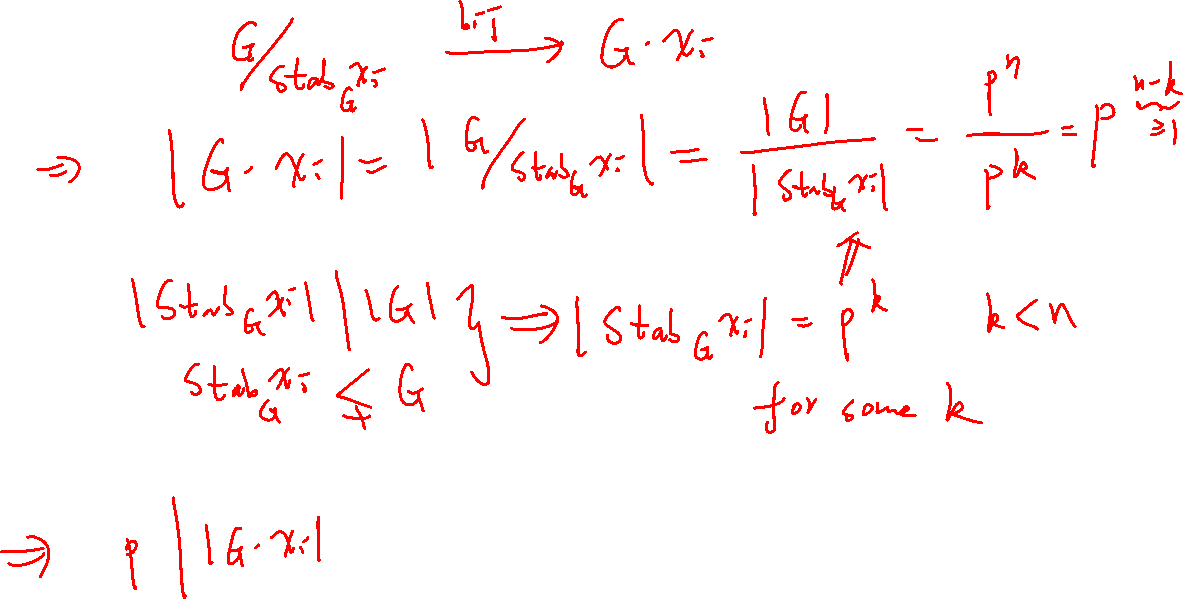 G/Stab_G x_i —bij→ G · x_i
⇒ |G · x_i| = |G/Stab_G x_i| = |G| / |Stab_G x_i| = p^n / p^k = p^{n-k} ≥1
|Stab_G x_i| | |G| } ⇒ |Stab_G x_i| = p^k k < n
Stab_G x_i ≨ G for some k
⇒ p | |G · x_i|